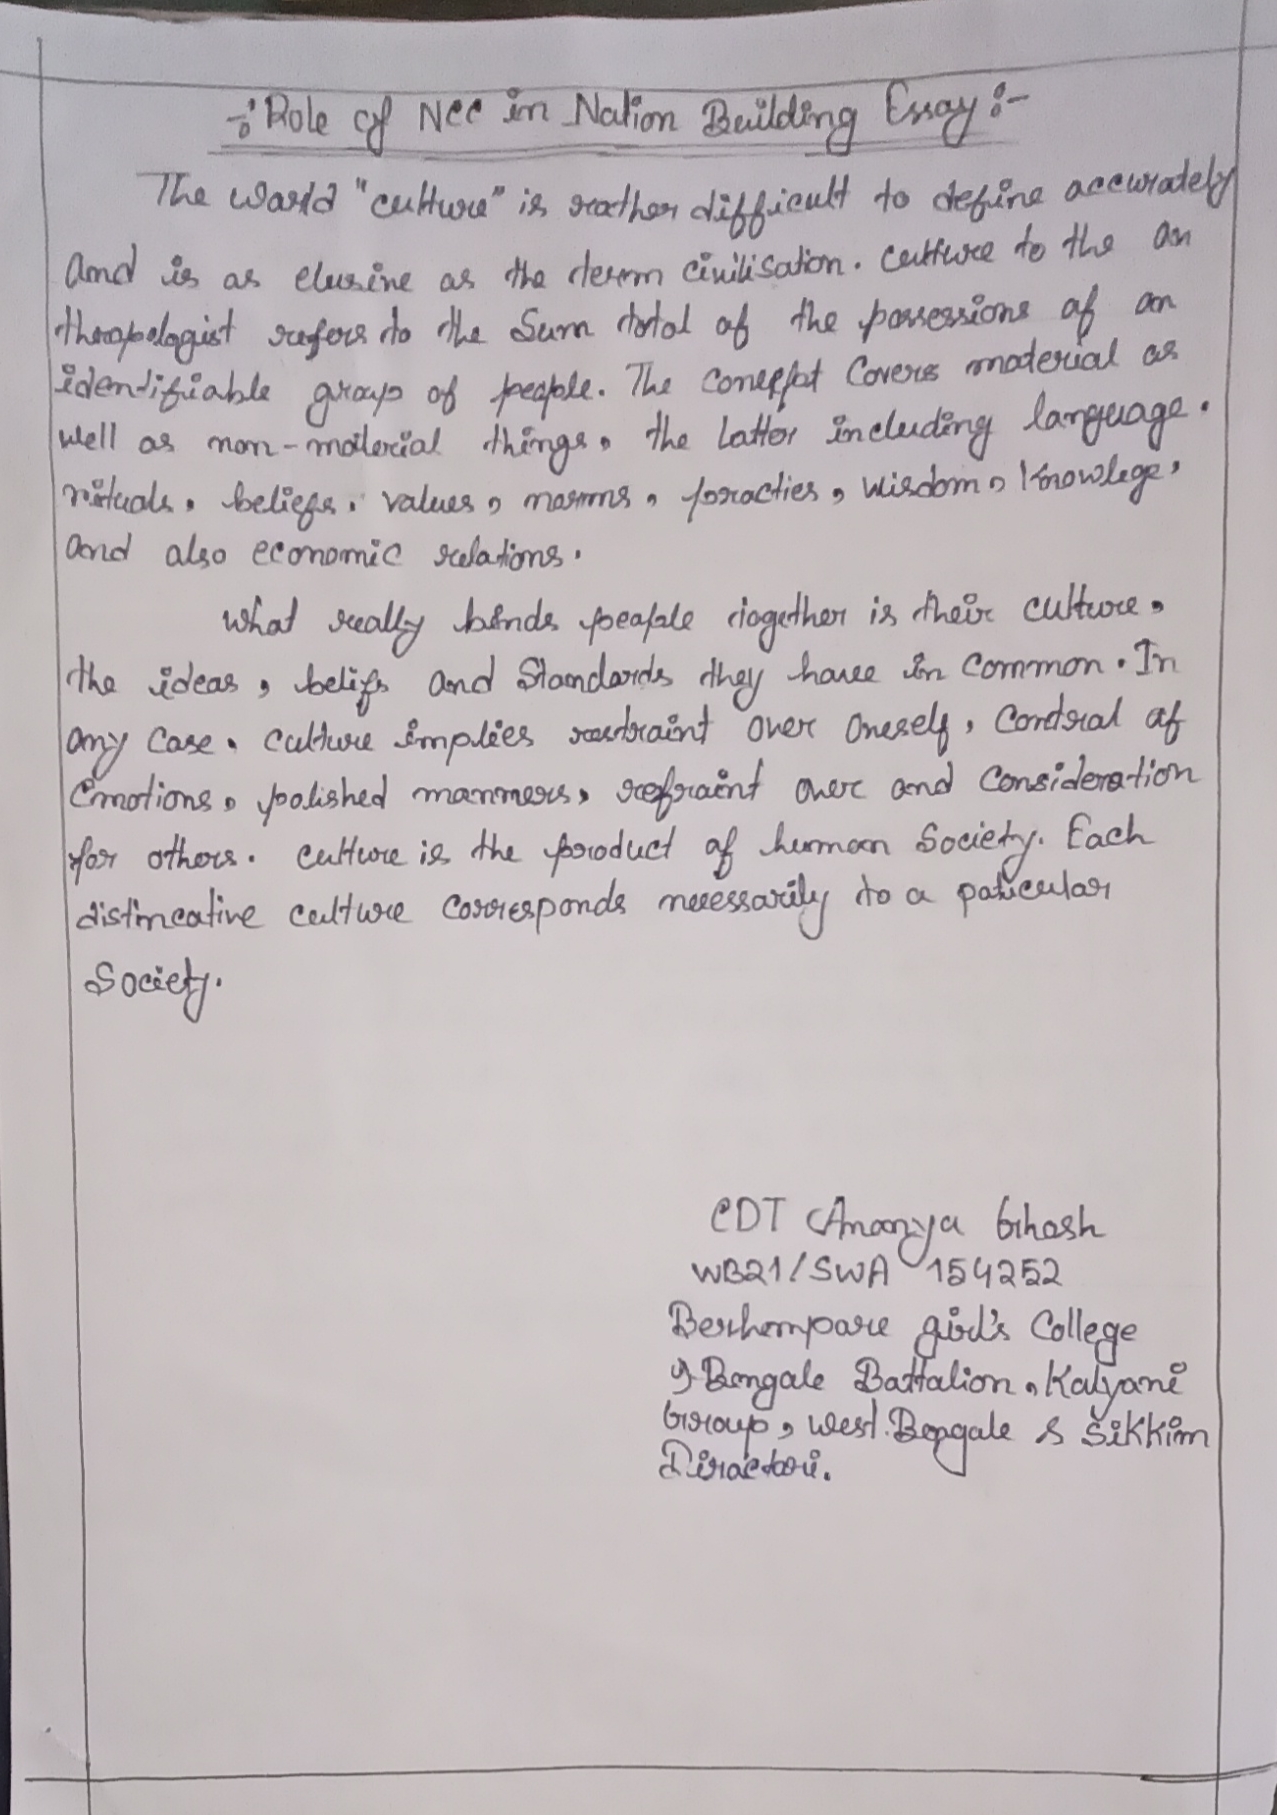 -:Role of NCC in Nation Building Essay:-
The warld "culture" is rather difficult to define accurately
and is as elusine as the term civilisation. culture to the an
thropologist refers to the Sum total of the possessions of an
identifiable group of people. The concept Covers material as
well as non-material things, the latter including language.
rituals, beliefs, values, norms, practies, wisdom, knowlege,
and also economic relations.
What really binds people together is their culture,
the ideas, belifs and Standards they have in Common. In
any Case, culture implies restraint over Oneself, Control of
Emotions, polished manners, refraint over and Consideration
for others. culture is the product of human Society. Each
distincative culture corresponds necessarily to a paticular
Society.
CDT Ananya Ghosh
WB21/SWA 154252
Berhampore girl's College
9 Bengale Battalion, Kalyani
Group, West Bengale & Sikkim
Diractori.